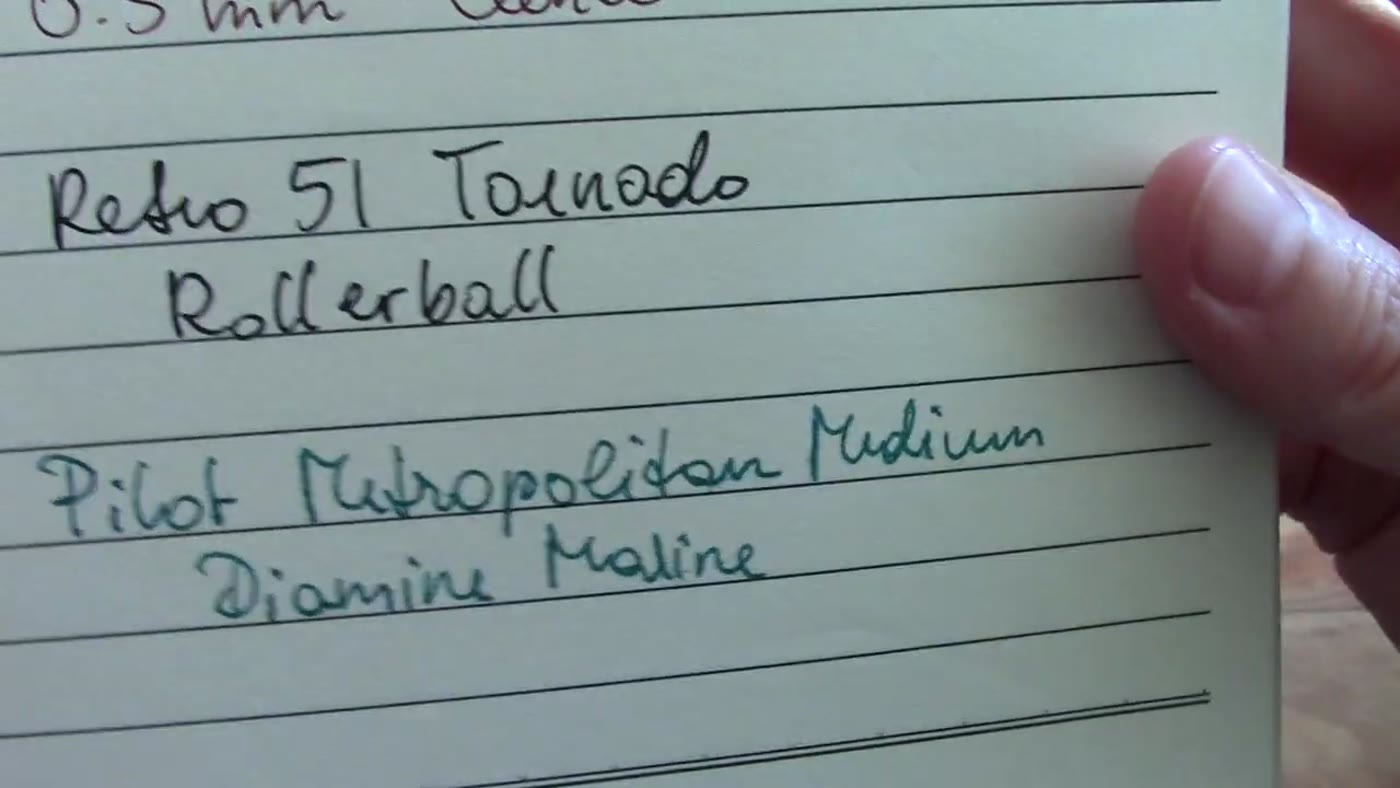 0.5 mm
Retro 51 Tornado
Rollerball
Pilot Metropolitan Medium
Diamine Marine